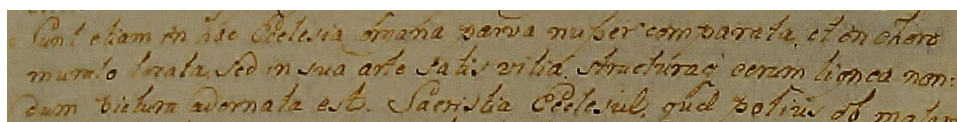 Sunt etiam in hac Ecclesia organa parva nuper comparata, et in choro
murato locata, sed in sua arte satis vitia, structuraq eorum lignea non:
dum pictura adornata est. Sacristia Ecclesiæ, quæ potius ob malam